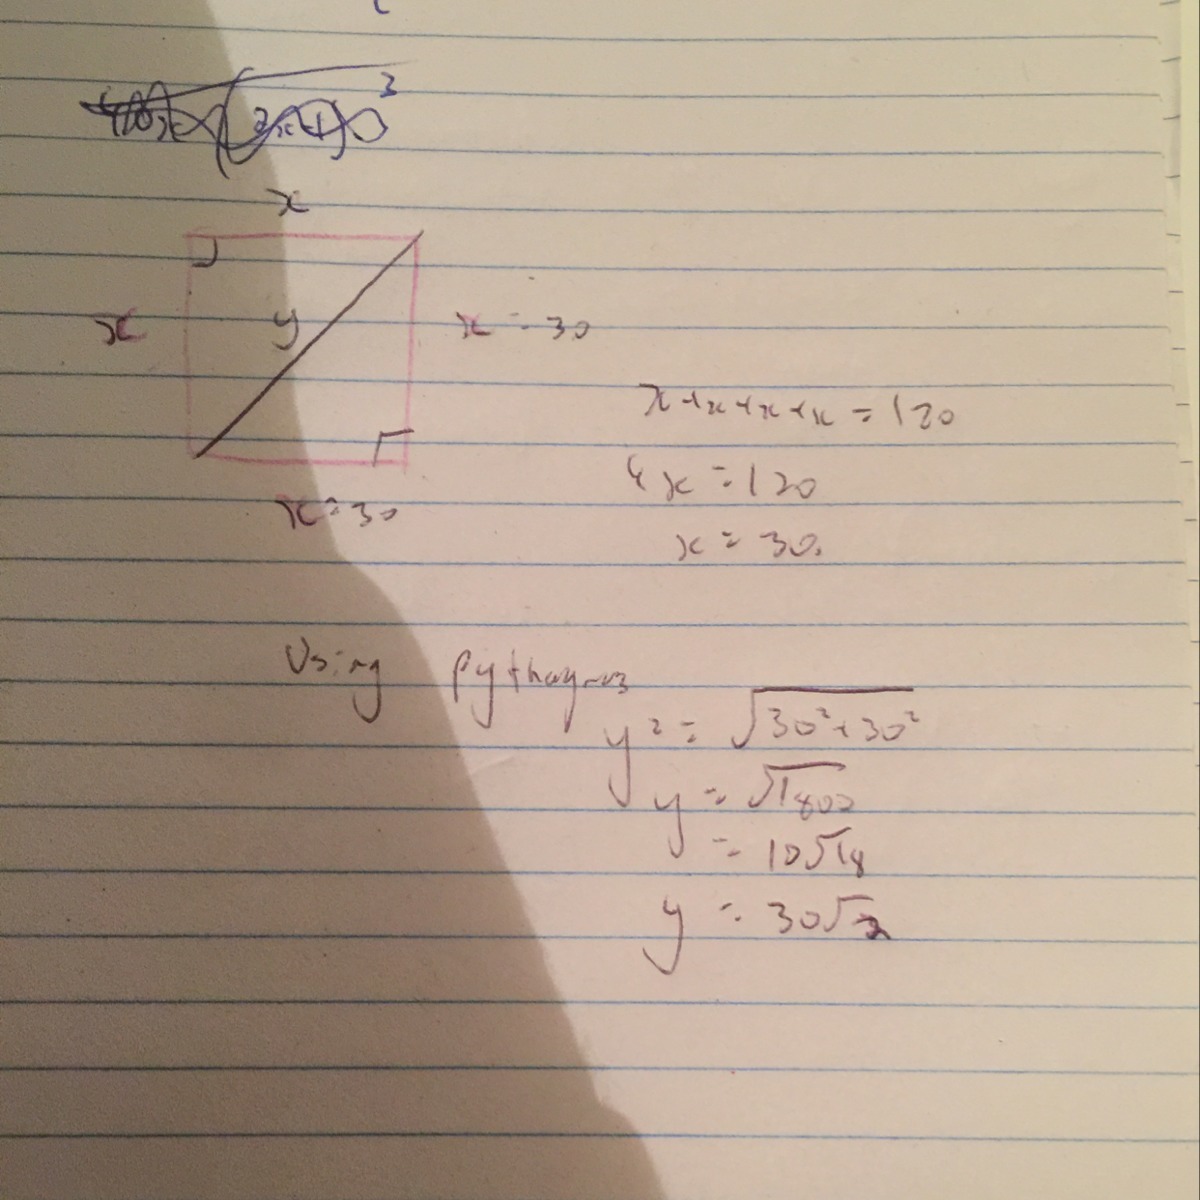 x
y
x
x = 30
x = 30
x + x + x + x = 120
4x = 120
x = 30.
Using Pythagoras
y² = √30² + 30²
y = √1800
= 10√18
y = 30√2